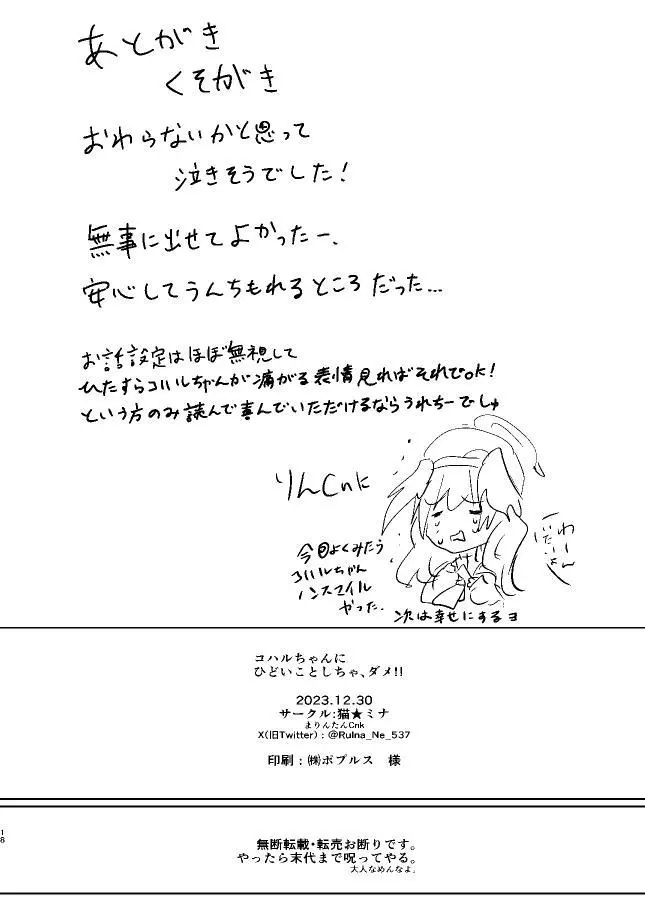 あとがき
くそがき
おわらないかと思って
泣きそうでした!
無事に出せてよかったー、
安心してうんちもれるところだった...
お話設定はほぼ無視して
ひたすらコハルちゃんが痛がる表情見ればそれでok!
という方のみ読んで喜んでいただけるならうれちーでしゅ
りんCnに
わーん
いたいよん
今回よくみたら
コハルちゃん
ノンスマイル
やった.
次は幸せにするヨ
コハルちゃんに
ひどいことしちゃ、ダメ!!
2023.12.30
サークル:猫★ミナ
まりんたんCnk
X(旧Twitter):@RuIna_Ne_537
印刷:㈱ポプルス 様
18
無断転載・転売お断りです。
やったら末代まで呪ってやる。
大人なめんなよ」